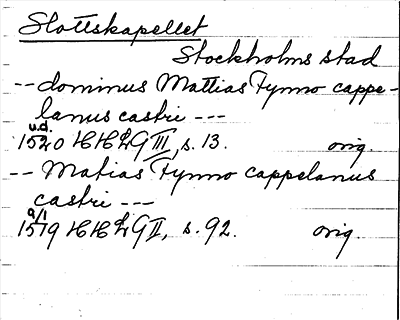 Slottskapellet
Stockholms stad
-- dominus Mattias Fynno cappe-
lanus castri ---
u.d.
1520 HH2G III, s. 13. orig.
-- Matias Fynno cappelanus
castri ---
9/1
1519 HH2G II, s. 92. orig.